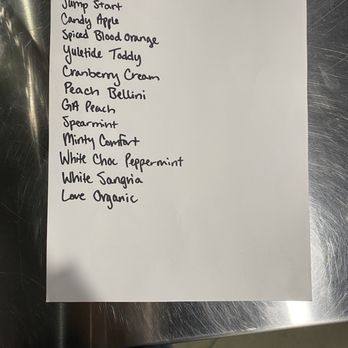 Jump Start
Candy Apple
Spiced Blood Orange
Yuletide Toddy
Cranberry Cream
Peach Bellini
GA Peach
Spearmint
Minty Comfort
White Choc Peppermint
White Sangria
Love Organic